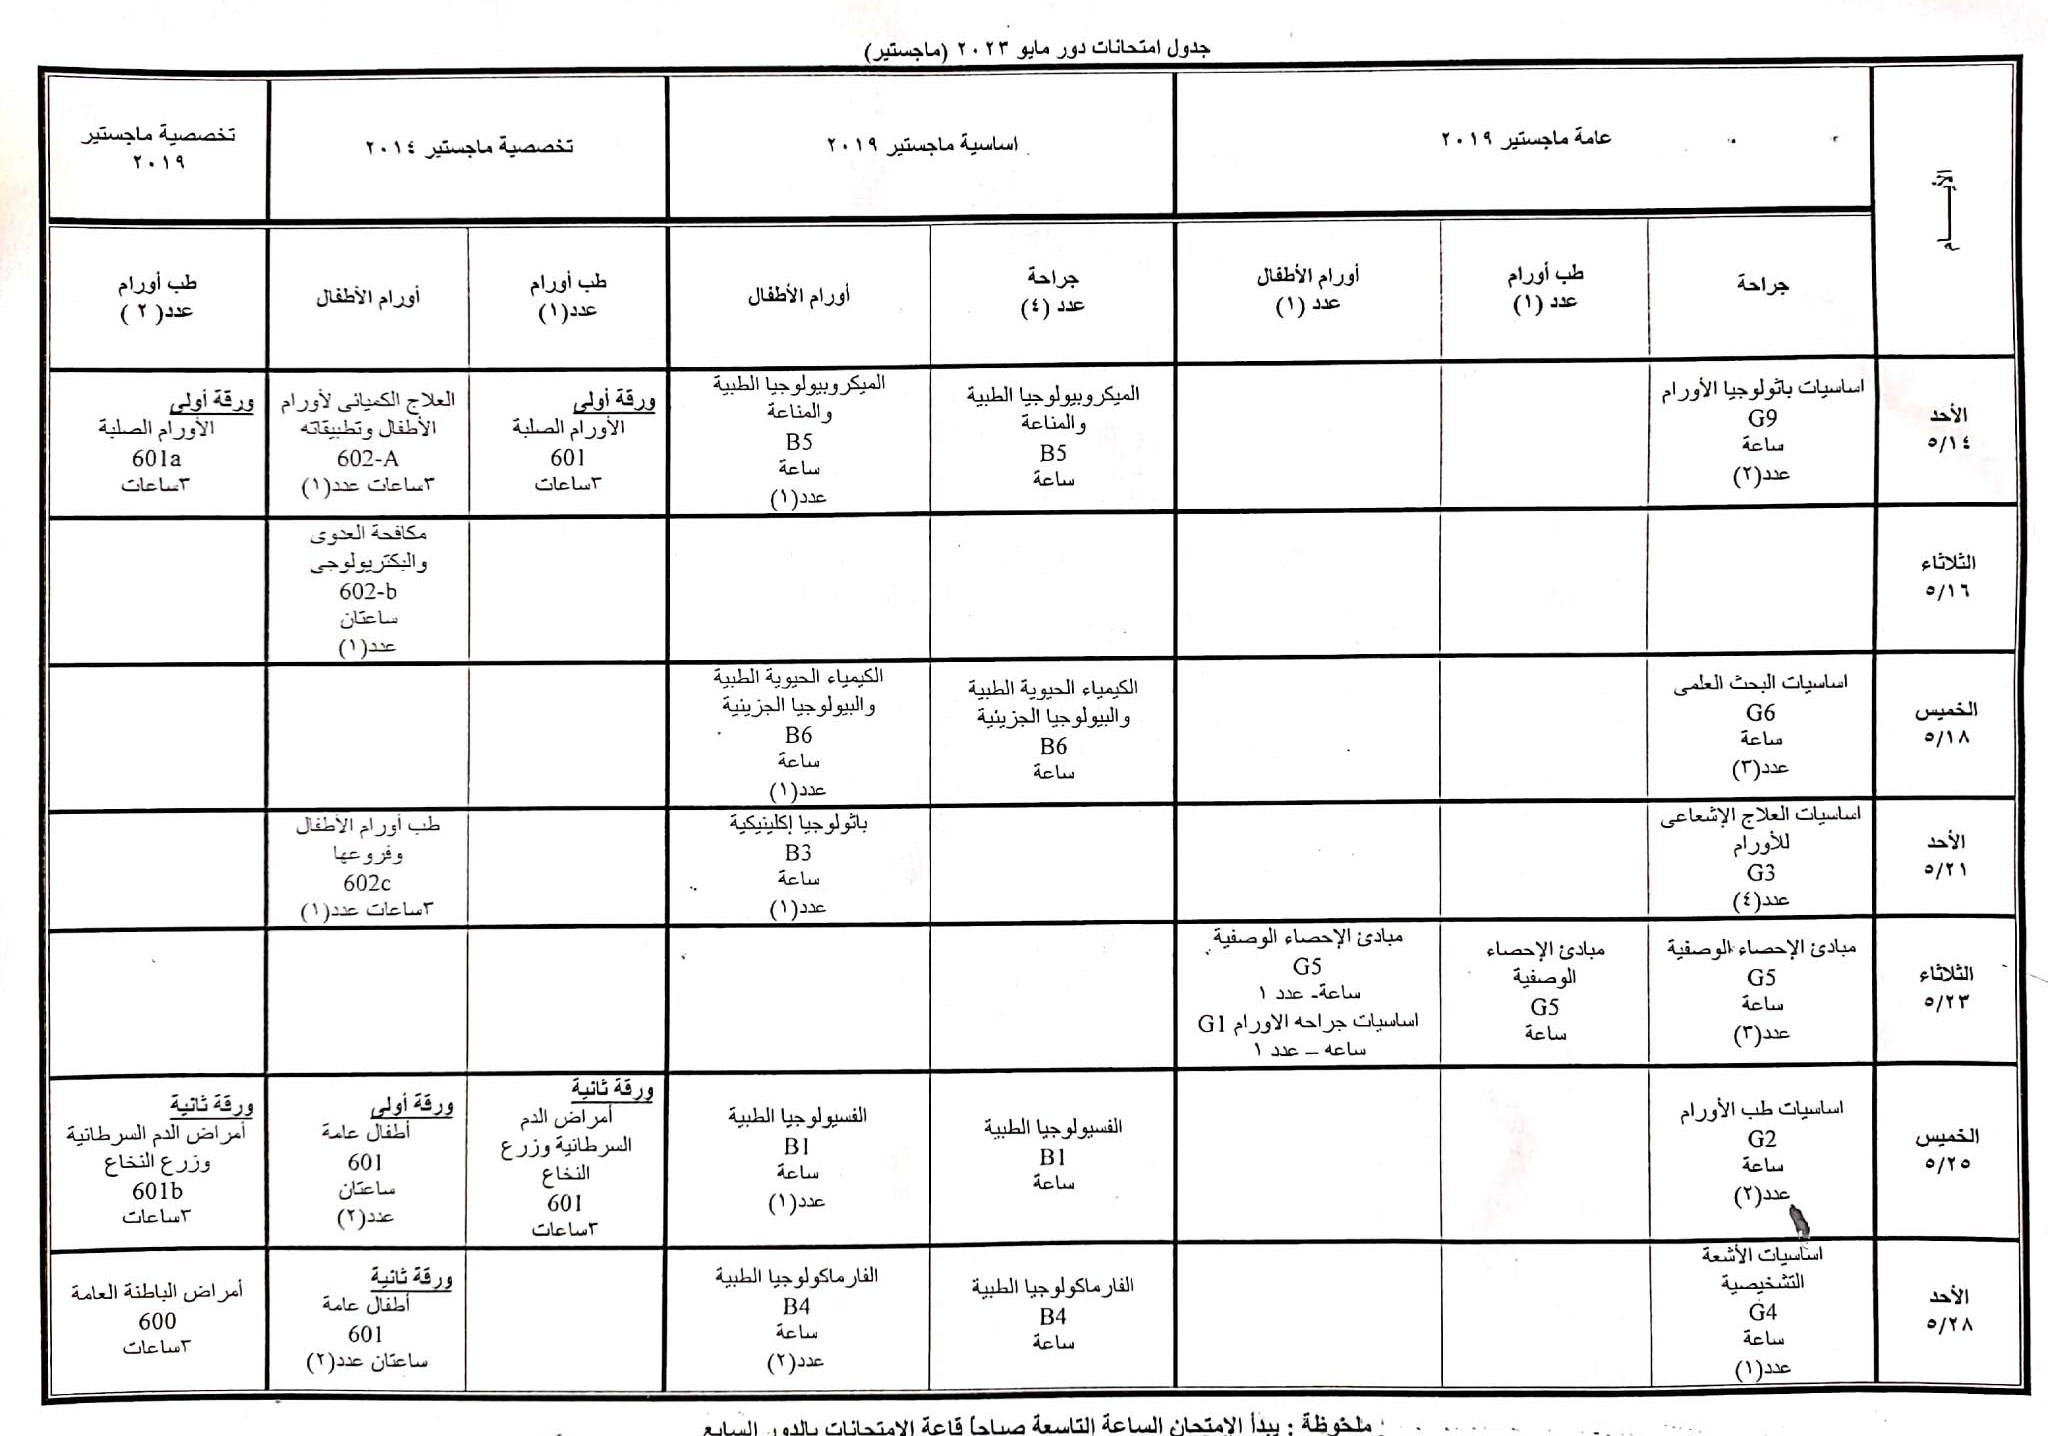 جدول امتحانات دور مايو ٢٠٢٣ (ماجستير)
الأيـــام
عامة ماجستير ٢٠١٩
اساسية ماجستير ٢٠١٩
تخصصية ماجستير ٢٠١٤
تخصصية ماجستير
٢٠١٩
جراحة
طب أورام
عدد (١)
أورام الأطفال
عدد (١)
جراحة
عدد (٤)
أورام الأطفال
طب أورام
عدد(١)
أورام الأطفال
طب أورام
عدد( ٢ )
الأحد
٥/١٤
اساسيات باثولوجيا الأورام
G9
ساعة
عدد(٢)
الميكروبيولوجيا الطبية
والمناعة
B5
ساعة
الميكروبيولوجيا الطبية
والمناعة
B5
ساعة
عدد(١)
ورقة أولى
الأورام الصلبة
601
٣ساعات
العلاج الكميائى لأورام
الأطفال وتطبيقاته
602-A
٣ساعات عدد(١)
ورقة أولى
الأورام الصلبة
601a
٣ساعات
الثلاثاء
٥/١٦
مكافحة العدوى
والبكتريولوجى
602-b
ساعتان
عدد(١)
الخميس
٥/١٨
اساسيات البحث العلمى
G6
ساعة
عدد(٣)
الكيمياء الحيوية الطبية
والبيولوجيا الجزيئية
B6
ساعة
الكيمياء الحيوية الطبية
والبيولوجيا الجزيئية
B6
ساعة
عدد(١)
الأحد
٥/٢١
اساسيات العلاج الإشعاعى
للأورام
G3
عدد(٤)
باثولوجيا إكلينيكية
B3
ساعة
عدد(١)
طب أورام الأطفال
وفروعها
602c
٣ساعات عدد(١)
الثلاثاء
٥/٢٣
مبادئ الإحصاء الوصفية
G5
ساعة
عدد(٣)
مبادئ الإحصاء
الوصفية
G5
ساعة
مبادئ الإحصاء الوصفية
G5
ساعة- عدد ١
اساسيات جراحه الاورام G1
ساعه – عدد ١
الخميس
٥/٢٥
اساسيات طب الأورام
G2
ساعة
عدد(٢)
الفسيولوجيا الطبية
B1
ساعة
الفسيولوجيا الطبية
B1
ساعة
عدد(١)
ورقة ثانية
أمراض الدم
السرطانية وزرع
النخاع
601
٣ساعات
ورقة أولى
أطفال عامة
601
ساعتان
عدد(٢)
ورقة ثانية
أمراض الدم السرطانية
وزرع النخاع
601b
٣ساعات
الأحد
٥/٢٨
اساسيات الأشعة
التشخيصية
G4
ساعة
عدد(١)
الفارماكولوجيا الطبية
B4
ساعة
الفارماكولوجيا الطبية
B4
ساعة
عدد(٢)
ورقة ثانية
أطفال عامة
601
ساعتان عدد(٢)
أمراض الباطنة العامة
600
٣ساعات
ملحوظة : يبدأ الامتحان الساعة التاسعة صباحاً قاعة الامتحانات بالدور السابع